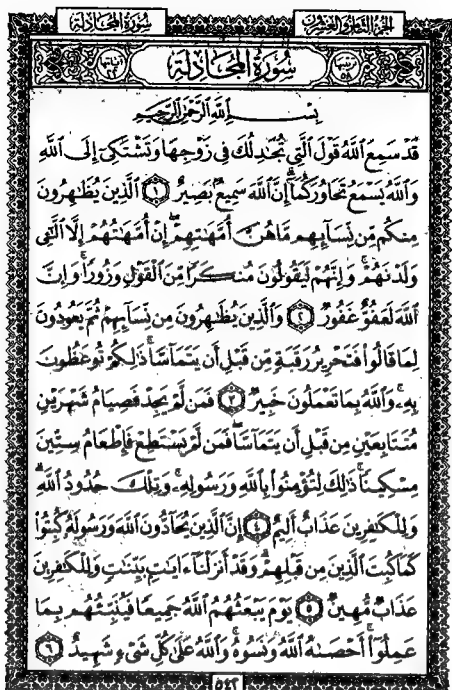 سُورَةُ المُجَادلَة
الجزء الثامن والعشرون
سُورَةُ المُجَادلَة
بِسْمِ ٱللَّهِ ٱلرَّحْمَٰنِ ٱلرَّحِيمِ
قَدْ سَمِعَ ٱللَّهُ قَوْلَ ٱلَّتِى تُجَٰدِلُكَ فِى زَوْجِهَا وَتَشْتَكِىٓ إِلَى ٱللَّهِ
وَٱللَّهُ يَسْمَعُ تَحَاوُرَكُمَآ إِنَّ ٱللَّهَ سَمِيعٌۢ بَصِيرٌ ۝١ ٱلَّذِينَ يُظَٰهِرُونَ
مِنكُم مِّن نِّسَآئِهِم مَّا هُنَّ أُمَّهَٰتِهِمْ إِنْ أُمَّهَٰتُهُمْ إِلَّا ٱلَّٰٓـِٔى
وَلَدْنَهُمْ وَإِنَّهُمْ لَيَقُولُونَ مُنكَرًا مِّنَ ٱلْقَوْلِ وَزُورًا وَإِنَّ
ٱللَّهَ لَعَفُوٌّ غَفُورٌ ۝٢ وَٱلَّذِينَ يُظَٰهِرُونَ مِن نِّسَآئِهِمْ ثُمَّ يَعُودُونَ
لِمَا قَالُوا۟ فَتَحْرِيرُ رَقَبَةٍ مِّن قَبْلِ أَن يَتَمَآسَّا ذَٰلِكُمْ تُوعَظُونَ
بِهِۦ وَٱللَّهُ بِمَا تَعْمَلُونَ خَبِيرٌ ۝٣ فَمَن لَّمْ يَجِدْ فَصِيَامُ شَهْرَيْنِ
مُتَتَابِعَيْنِ مِن قَبْلِ أَن يَتَمَآسَّا فَمَن لَّمْ يَسْتَطِعْ فَإِطْعَامُ سِتِّينَ
مِسْكِينًا ذَٰلِكَ لِتُؤْمِنُوا۟ بِٱللَّهِ وَرَسُولِهِۦ وَتِلْكَ حُدُودُ ٱللَّهِ
وَلِلْكَٰفِرِينَ عَذَابٌ أَلِيمٌ ۝٤ إِنَّ ٱلَّذِينَ يُحَآدُّونَ ٱللَّهَ وَرَسُولَهُۥ كُبِتُوا۟
كَمَا كُبِتَ ٱلَّذِينَ مِن قَبْلِهِمْ وَقَدْ أَنزَلْنَآ ءَايَٰتٍۭ بَيِّنَٰتٍ وَلِلْكَٰفِرِينَ
عَذَابٌ مُّهِينٌ ۝٥ يَوْمَ يَبْعَثُهُمُ ٱللَّهُ جَمِيعًا فَيُنَبِّئُهُم بِمَا
عَمِلُوٓا۟ أَحْصَىٰهُ ٱللَّهُ وَنَسُوهُ وَٱللَّهُ عَلَىٰ كُلِّ شَىْءٍ شَهِيدٌ ۝٦
٥٤٢